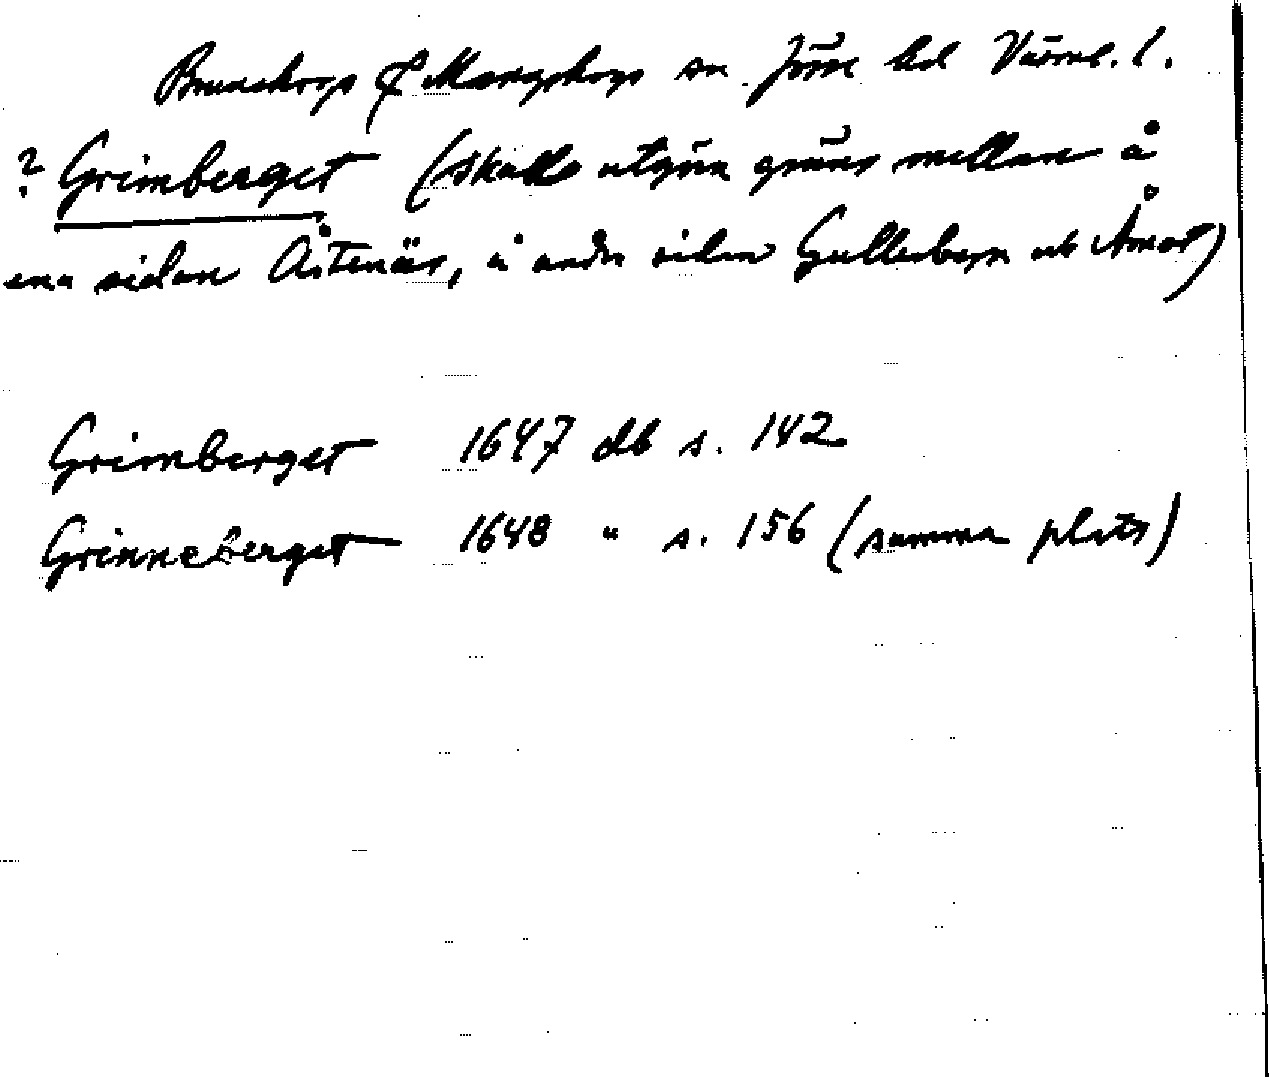 Brunskogs & Mangskogs sn Jösse hd Värml. l.
? Grimberget (skulle utgöra gräns mellan å
ena sidan Årtenär, å andra sidan Gullerbyn och Åmot)
Grimberget 1647 db s. 142
Grinneberget 1648 " s. 156 (samma plats)